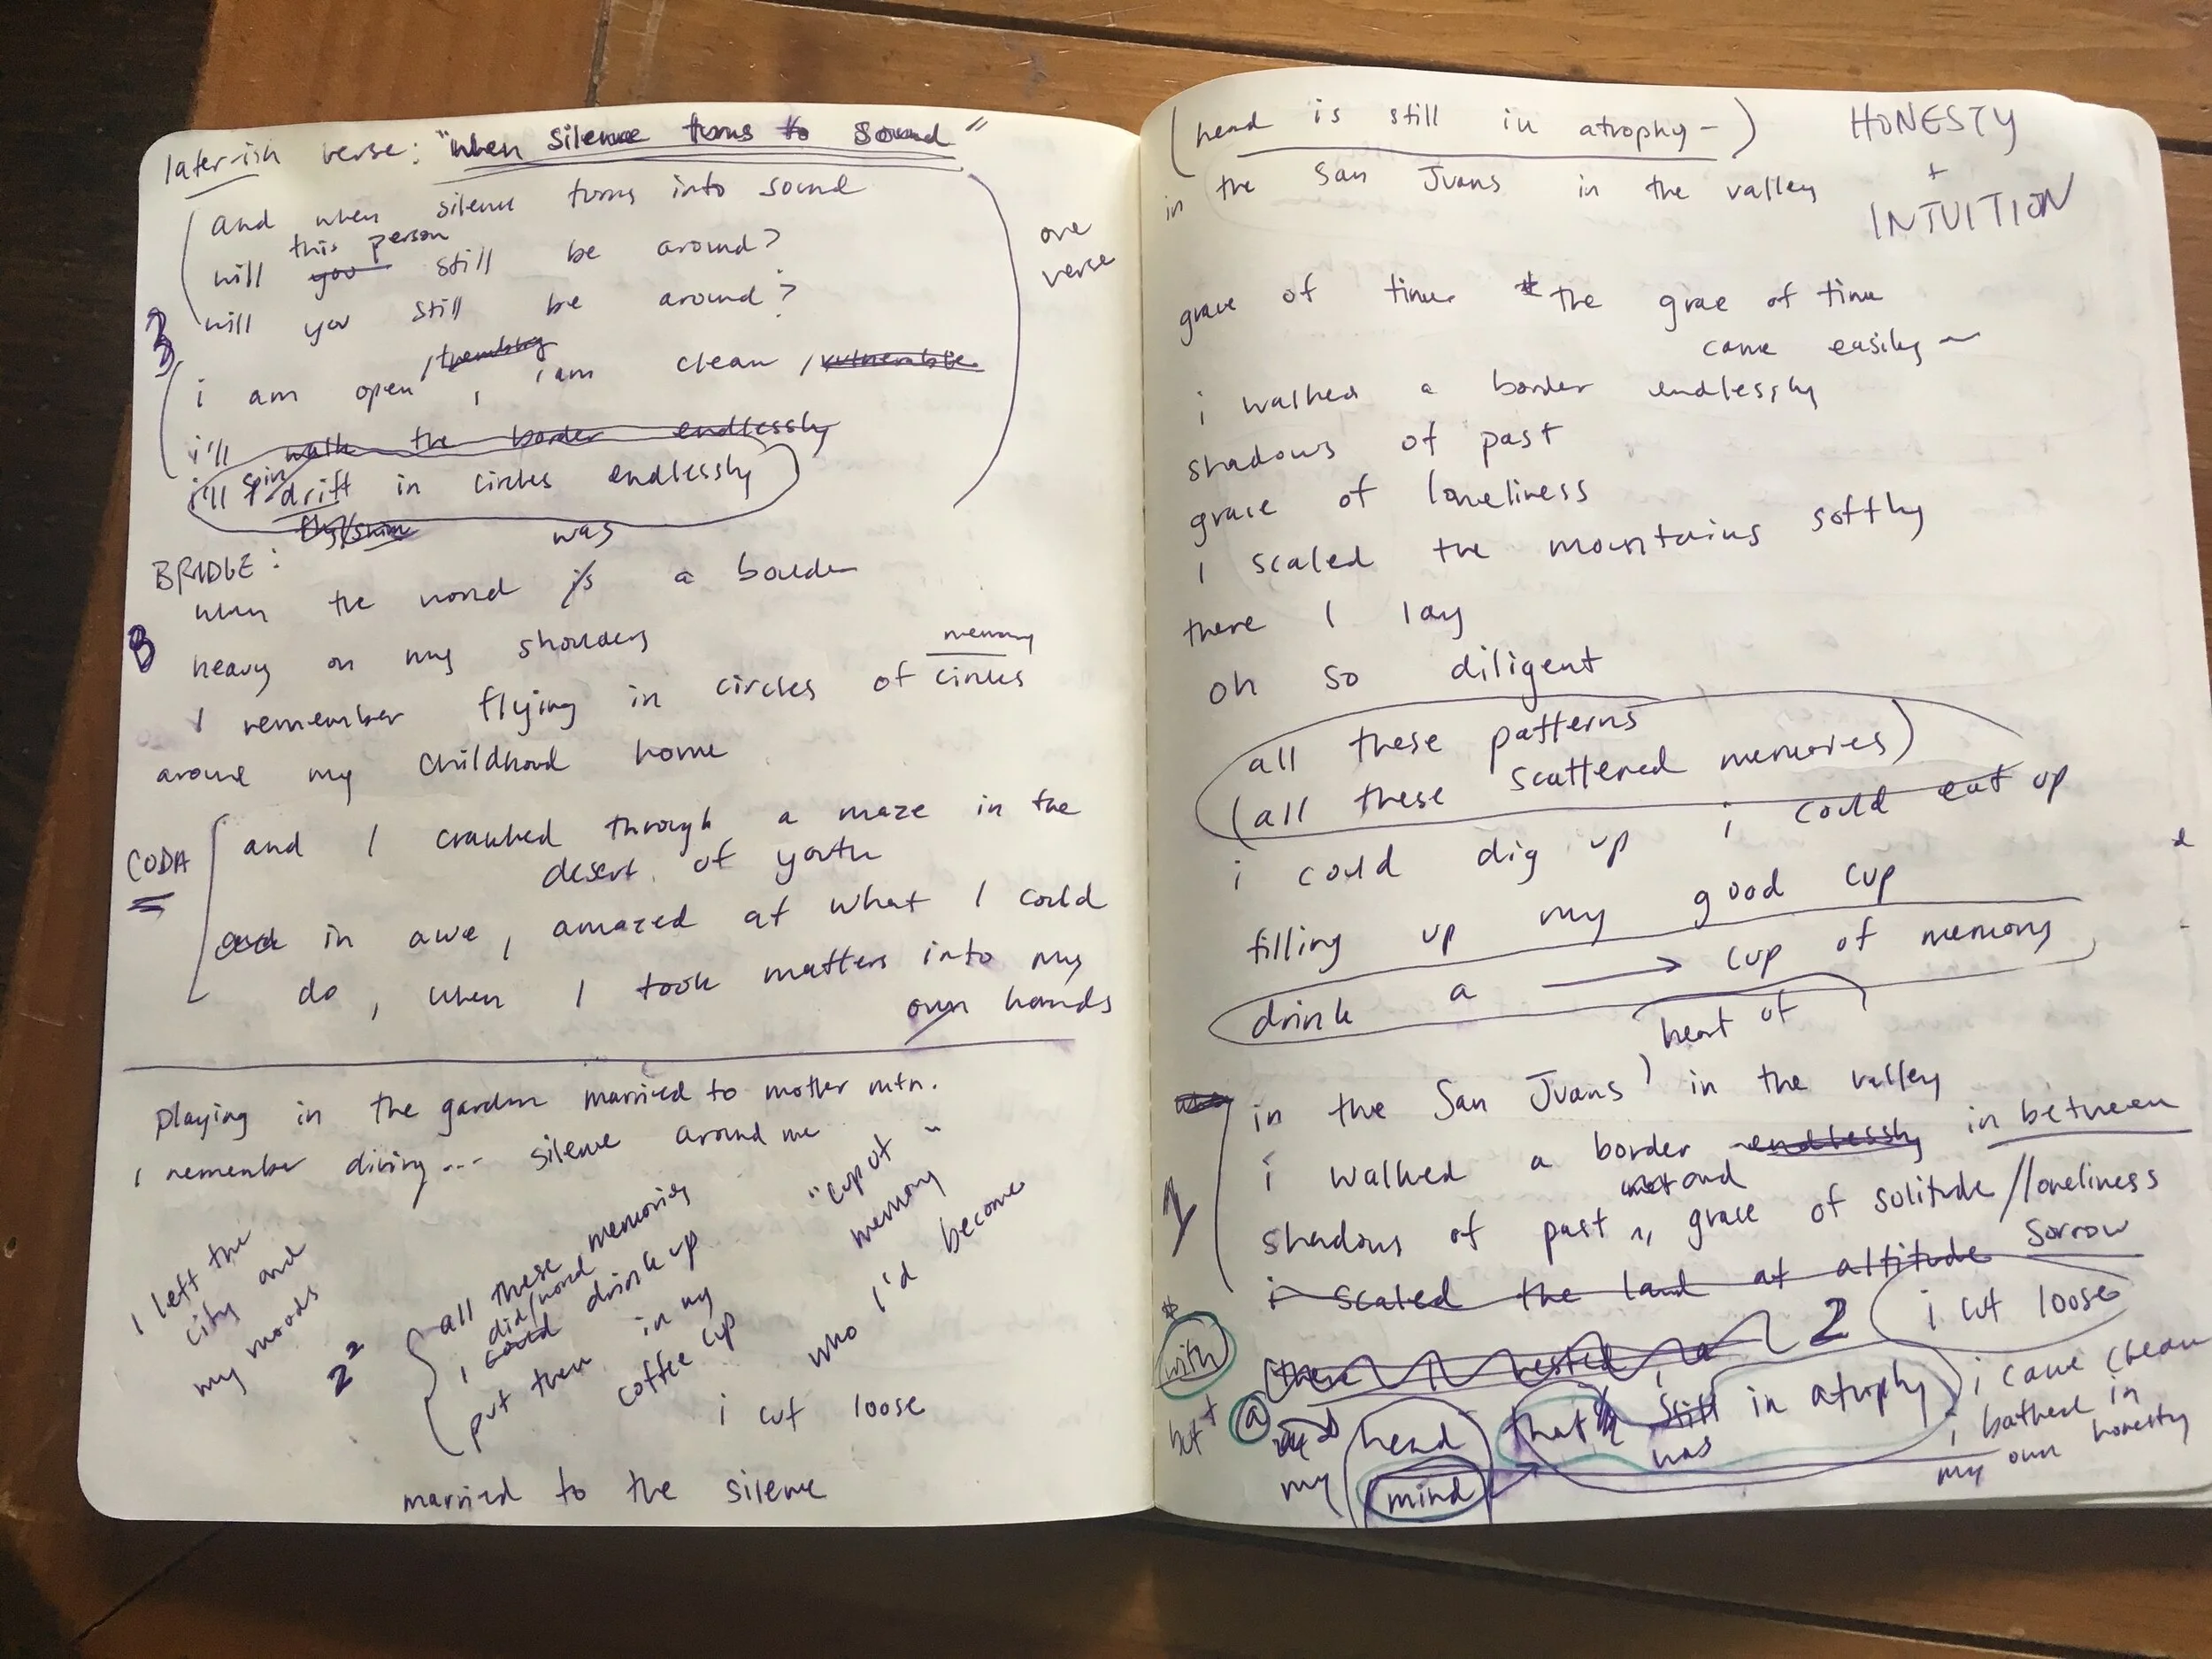 later-ish verse: "when silence turns to sound"
and when silence turns into sound
this person
will you still be around?
will you still be around?
one
verse
3
trembling
i am open, i am clean, vulnerable
i'll walk the border endlessly
spin
i'll drift in circles endlessly
was
BRIDGE:
when the world is a boulder
B
heavy on my shoulders
memory
I remember flying in circles of circles
around my childhood home
CODA
and I crawled through a maze in the
desert of youth
and in awe, amazed at what I could
do, when I took matters into my
own hands
playing in the garden married to mother mtn.
I remember diving... silence around me
I left the
city and
my moods
2²
all these memories
did/would
I could drink up
put them in my
coffee cup
"cup of
memory"
who I'd become
i cut loose
married to the silence
(head is still in atrophy-)
in the San Juans in the valley
HONESTY
+
INTUITION
grace of time * the grace of time
came easily ~
i walked a border endlessly
shadows of past
grace of loneliness
I scaled the mountains softly
there I lay
oh so diligent
all these patterns
(all these scattered memories)
i could dig up i could eat up
filling up my good cup
drink a → cup of memory
heart of
in the San Juans in the valley
i walked a border endlessly in between
and
1
shadows of past, grace of solitude//loneliness
sorrow
i scaled the land at altitude
i cut loose
2
there I rested
with
but
a
my
head
that still in atrophy
was
mind
i came clean
i bathed in
my own honesty